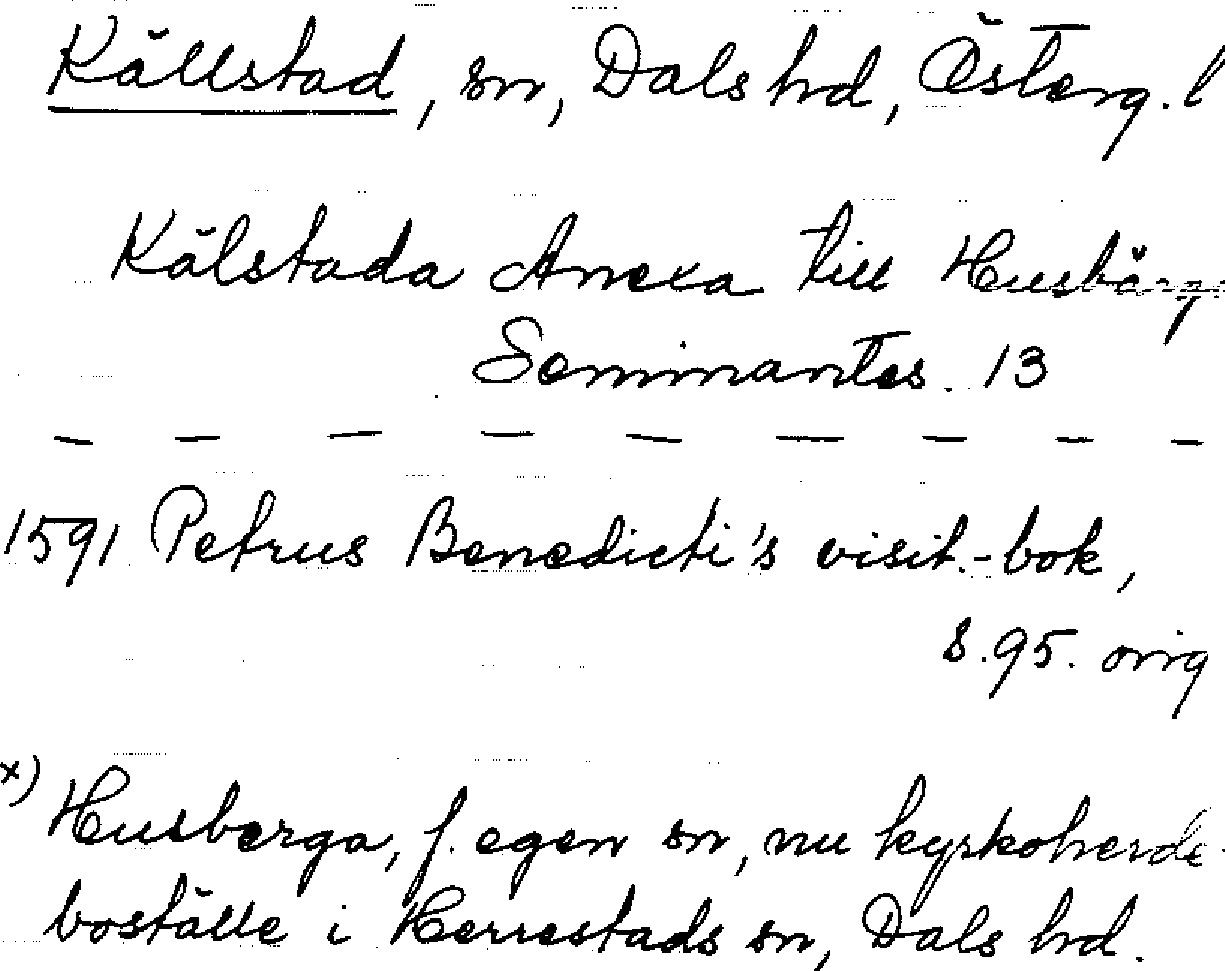 Källstad, sn, Dals hd, Österg. l
Kälstada Anexa till Husbärg
Seminantes. 13
1591 Petrus Benedicti's visit.-bok,
s. 95. orig
x) Husberga, f. egen sn, nu kyrkoherde-
boställe i Herrestads sn, Dals hd.